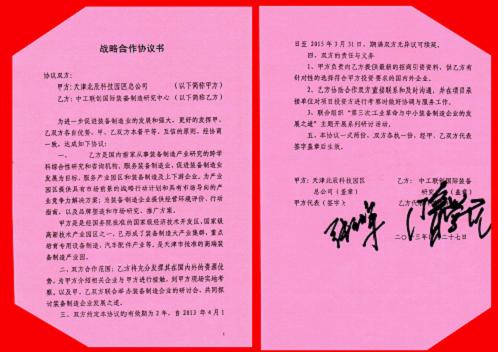 战略合作协议书
协议双方：
甲方：天津北辰科技园区总公司 （以下简称甲方）
乙方：中工联创国际装备制造研究中心（以下简称乙方）
为进一步促进装备制造业的发展和强大，更好的发挥甲、
乙双方各自优势，甲、乙双方本着平等、互信的原则，经协商
一致，达成如下协议：
一、 乙方是国内首家从事装备制造产业研究的跨学
科综合性研究和咨询机构，服务装备制造业、促进装备制造业
发展为目标，服务产业园区和装备制造及上下游企业，为产业
园区提供具有市场前景的战略行动计划和具有市场导向的产
业竞争力解决方案；为装备制造企业提供经营环境评价、行动
指南，以及品牌塑造和市场研究、推广方案。
甲方是经国务院批准的国家级经济技术开发区、国家级
高新技术产业园区之一，已形成了装备制造大产业集群，重点
培育专用设备制造、汽车配件产业等，是天津市批准的高端装
备制造产业园。
二、双方合作范围：乙方将充分发挥其在国内外的资源优
势，为甲方介绍相关企业与甲方进行接触，到甲方现场实地考
察，以及甲、乙双方联合举办装备制造企业的研讨会，共同探
讨装备制造企业发展之道。
三、双方约定本协议的有效期为 2 年，自 2013 年 4 月 1
1
日至 2015 年 3 月 31 日，期满双方无异议可续延。
四、双方的责任与义务
1、甲方负责向乙方提供最新的招商引资资料，供乙方有
针对性的选择符合甲方投资要求的国内外企业。
2、乙方协助合作双方直接联系和及时沟通，并在项目承
接单位对项目投资方进行考察时做好协调与服务工作。
3、联合组织“第三次工业革命与中小装备制造企业的发
展之道”主题开展系列研讨活动。
五、本协议一式两份，双方各执一份，经甲、乙双方代表
签字盖章后生效。
甲方：天津北辰科技园区 乙方：中工联创国际装备
总公司（盖章） 研究（盖章）
甲方代表（签字） 乙方代
二〇一三年 二十七日